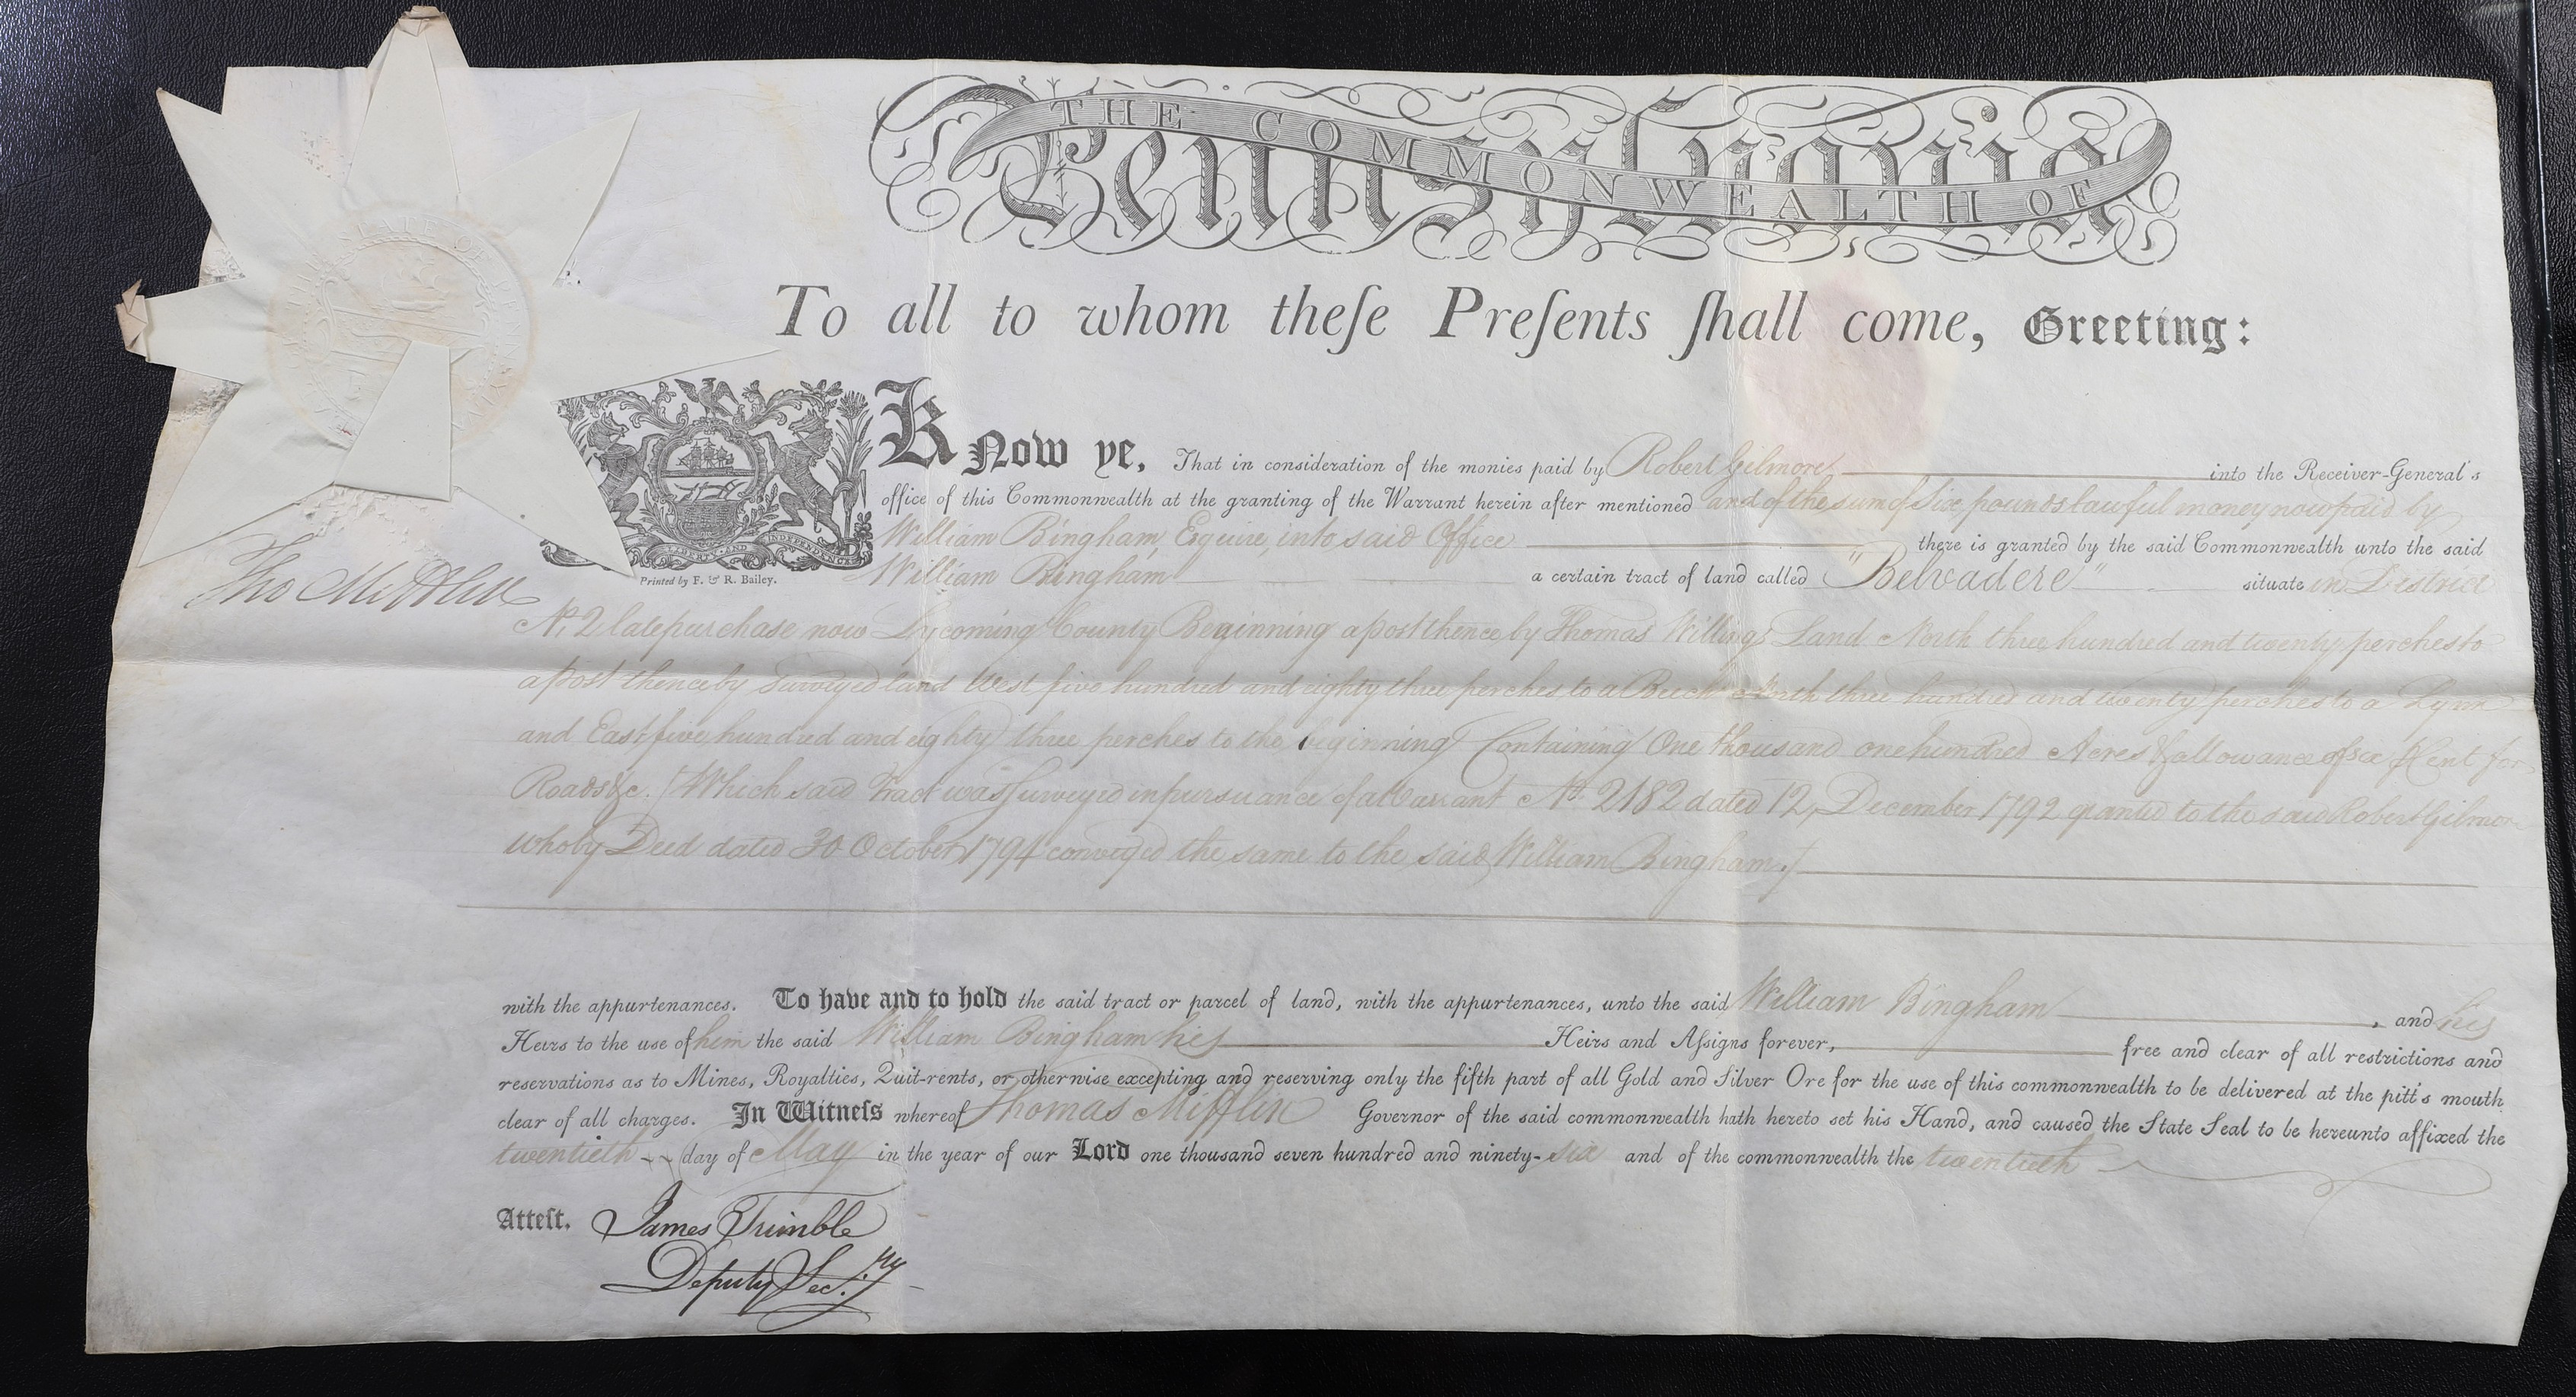 THE COMMONWEALTH OF
Pennsylvania
To all to whom theſe Preſents ſhall come, Greeting:
Know ye, That in consideration of the monies paid by Robert Gilmore into the Receiver-General's
office of this Commonwealth at the granting of the Warrant herein after mentioned and of the sum of Six pounds lawful money now paid by
William Bingham, Esquire, into said Office there is granted by the said Commonwealth unto the said
William Bingham a certain tract of land called "Belvadere" situate in District
LIBERTY AND INDEPENDENCE
Printed by F. & R. Bailey.
Tho Mifflin
No. 2 late purchase now Lycoming County Beginning a post thence by Thomas Willings Land North three hundred and twenty perches to
a post thence by Surveyed land West five hundred and eighty three perches to a Beech North three hundred and twenty perches to a Lynn
and East five hundred and eighty three perches to the beginning Containing One thousand one hundred Acres & allowance of six ⅌ Cent for
Roads &c. [Which said Tract was surveyed in pursuance of a Warrant No. 2182 dated 12, December 1792 granted to the said Robert Gilmore
who by Deed dated 30 October 1794 conveyed the same to the said William Bingham.]
with the appurtenances. To have and to hold the said tract or parcel of land, with the appurtenances, unto the said William Bingham, and his
Heirs to the use of him the said William Bingham his Heirs and Aſsigns forever, free and clear of all restrictions and
reservations as to Mines, Royalties, Quit-rents, or otherwise excepting and reserving only the fifth part of all Gold and Silver Ore for the use of this commonwealth to be delivered at the pitt's mouth
clear of all charges. In Witneſs whereof Thomas Mifflin Governor of the said commonwealth hath hereto set his Hand, and caused the State Seal to be hereunto affixed the
twentieth day of May in the year of our Lord one thousand seven hundred and ninety-six and of the commonwealth the twentieth
Atteſt. James Trimble
Deputy Sec.ry